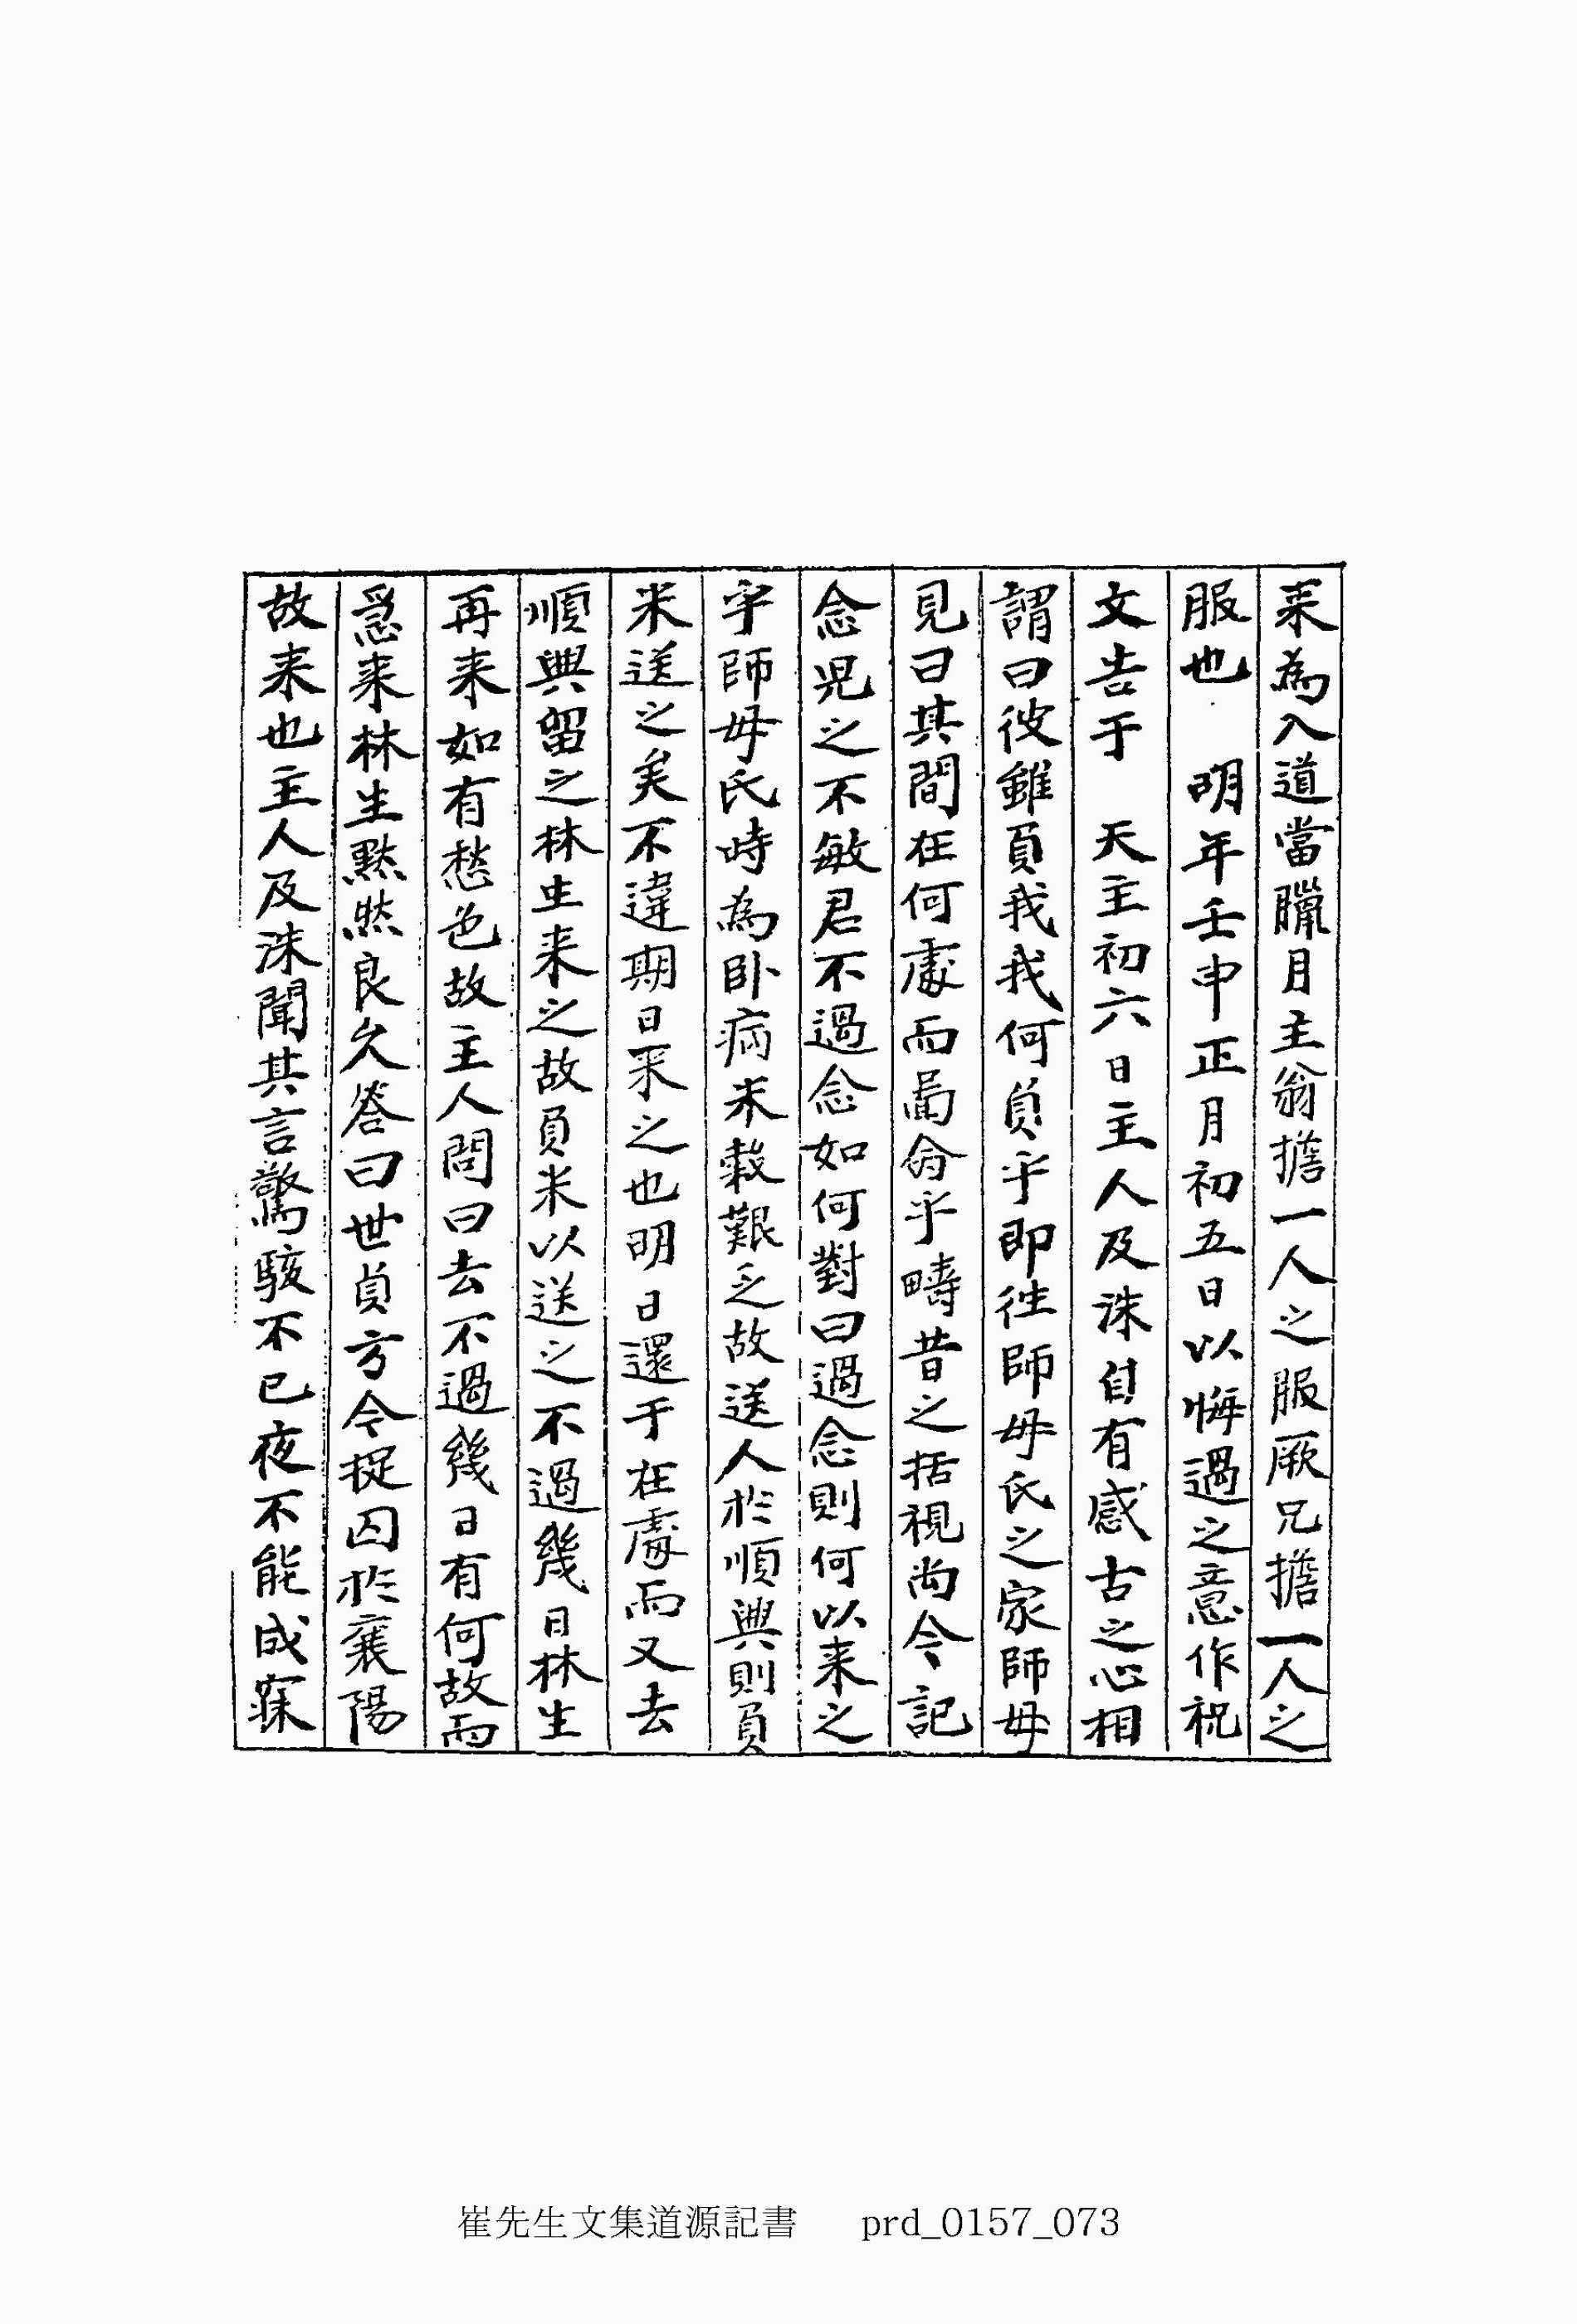 来為入道當臘月主翁擔一人之服厥兄擔一人之
服也 明年壬申正月初五日以悔過之意作祝
文告于 天主初六日主人及洙自有感古之心相
謂曰彼雖負我我何負乎即徃師母氏之家師母
見曰其間在何處而啚命乎疇昔之括視尚今記
念児之不敏君不過念如何對曰過念則何以来之
乎師母氏時為卧病米穀艱乏故送人於順興則負
米送之矣不違期日来之也明日還于在處而又去
順興留之林生来之故負米以送之不過幾日林生
再来如有愁色故主人問曰去不過幾日有何故而
急来林生黙然良久答曰世貞方令捉囚於襄陽
故来也主人及洙聞其言驚駭不已夜不能成寐
崔先生文集道源記書 prd_0157_073